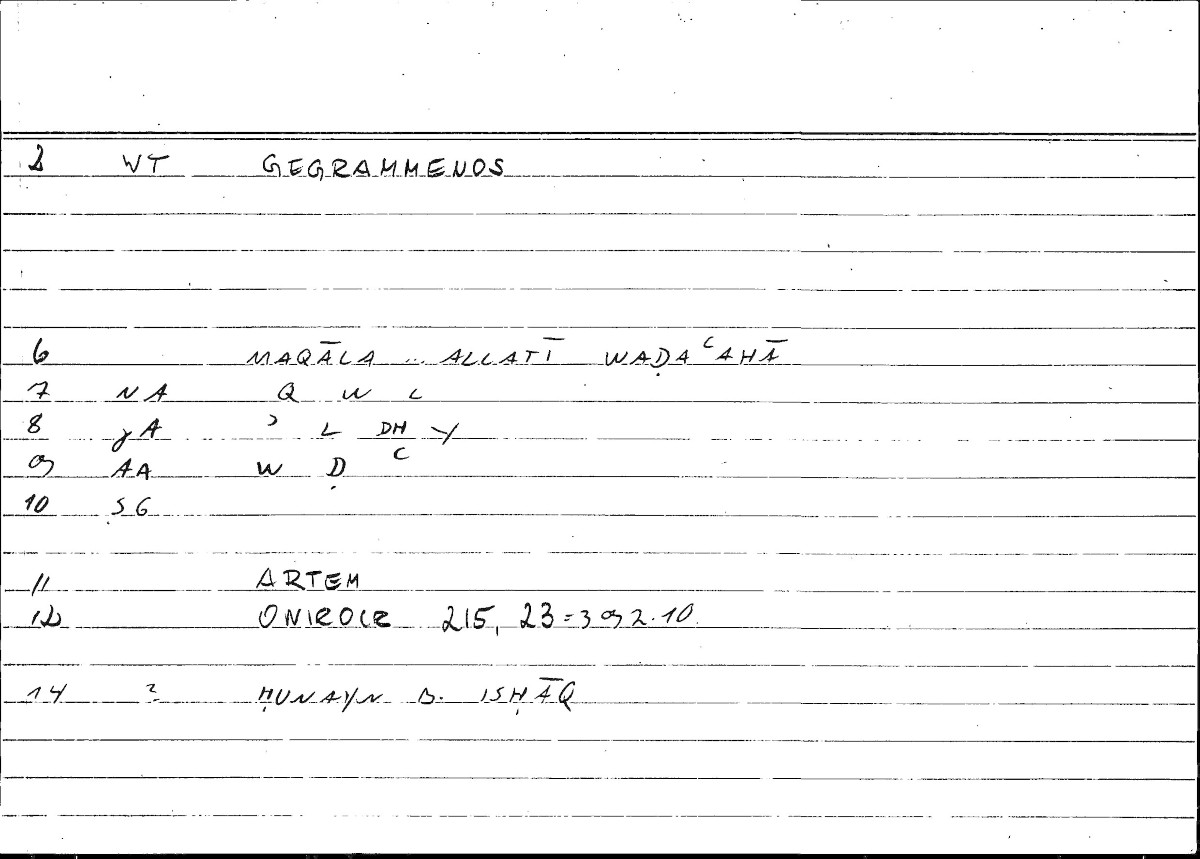 2 WT GEGRAMMENOS
6 MAQĀLA ... ALLATĪ WAḌAʿAHĀ
7 NA Q W L
8 jA ʾ L DH Y
9 AA W Ḍ ʿ
10 SG
11 ARTEM
12 ONIROCR 215, 23 = 392.10
14 ? ḤUNAYN B. ISḤĀQ